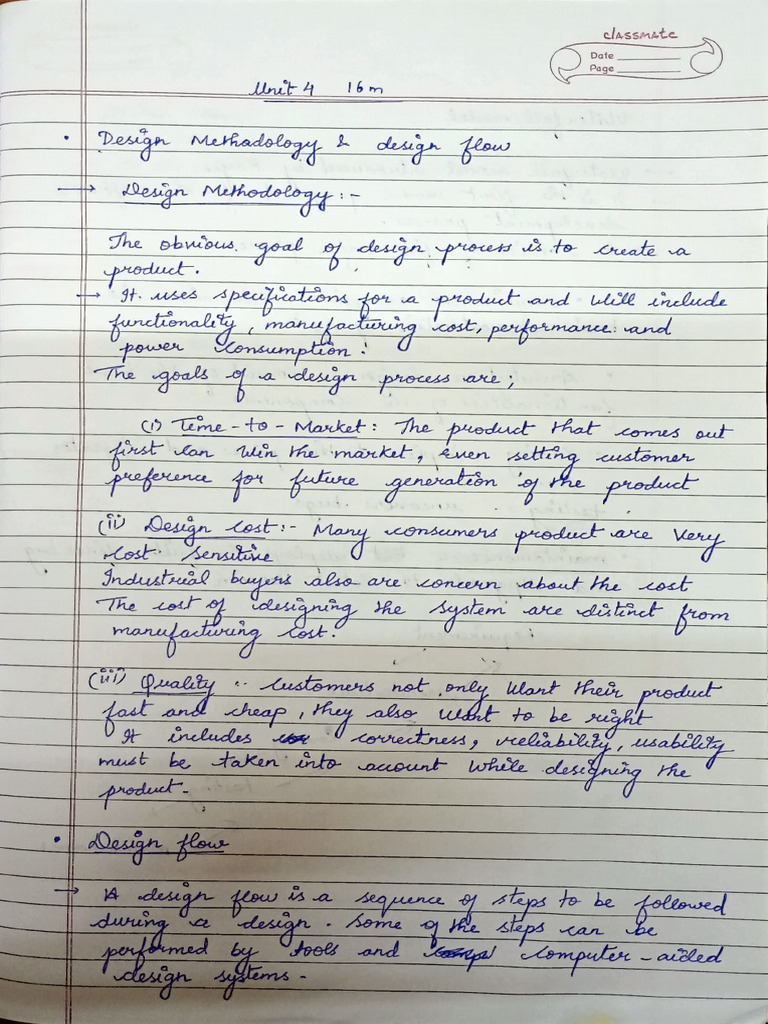 classmate
Date
Page
Unit 4 16m
• Design Methadology & design flow
→ Design Methodology :-
The obvious goal of design process is to create a
product.
→ It uses specifications for a product and will include
functionality, manufacturing cost, performance and
power consumption.
The goals of a design process are;
(i) Time-to-Market: The product that comes out
first can win the market, even setting customer
preference for future generation of the product
(ii) Design cost:- Many consumers product are very
cost sensitive
Industrial buyers also are concern about the cost
The cost of designing the system are distinct from
manufacturing cost.
(iii) Quality :- Customers not only want their product
fast and cheap, they also want to be right
It includes correctness, reliability, usability
must be taken into account while designing the
product.
• Design flow
→ A design flow is a sequence of steps to be followed
during a design. Some of the steps can be
performed by tools and computer-aided
design systems.